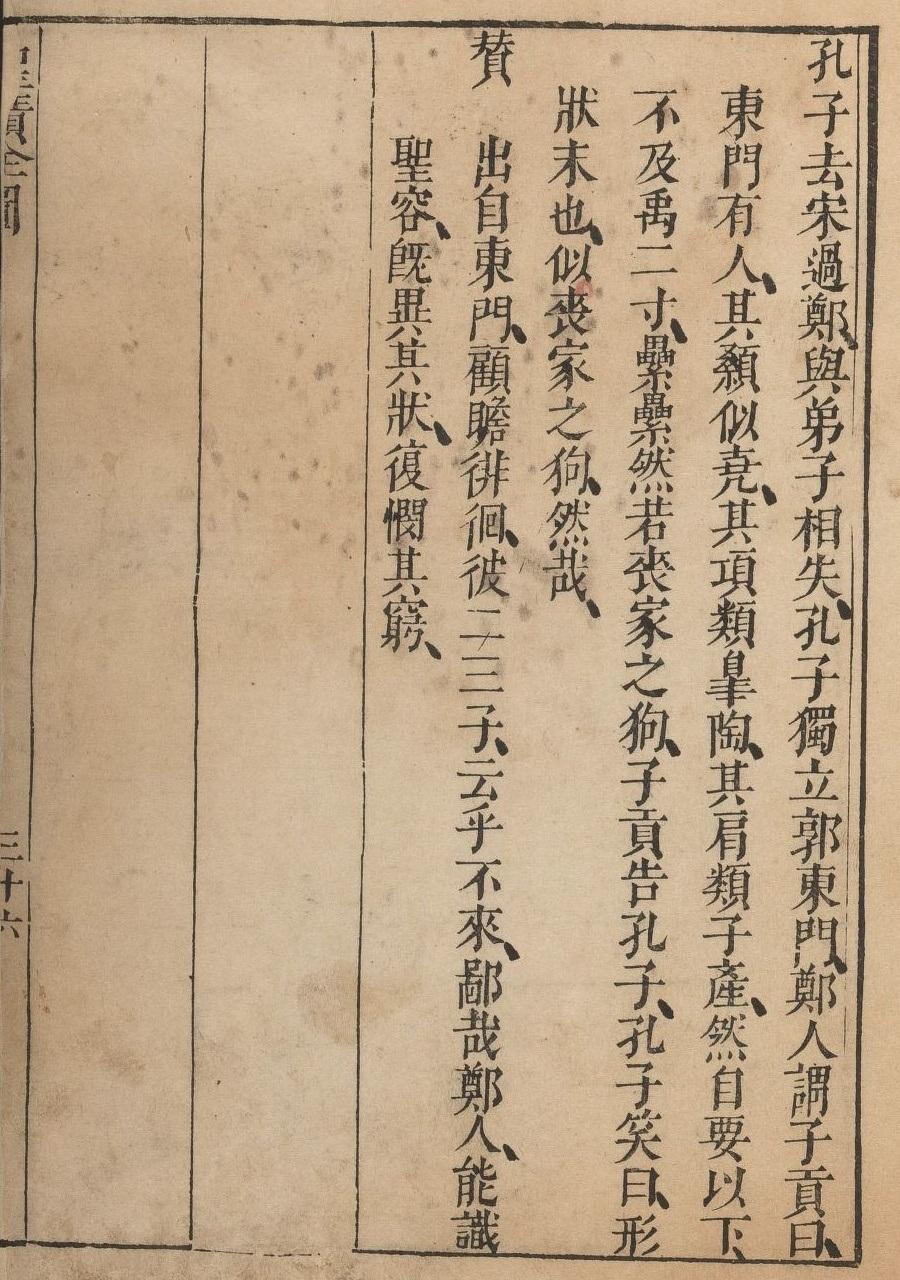 孔子去宋過鄭、與弟子相失、孔子獨立郭東門、鄭人謂子貢曰、
東門有人、其顙似堯、其項類臯陶、其肩類子產、然自要以下、
不及禹二寸、纍纍然若喪家之狗、子貢告孔子、孔子笑曰、形
狀末也、似喪家之狗、然哉、
贊
出自東門、顧瞻徘徊、彼二三子、云乎不來、鄙哉鄭人、能識
聖容、旣異其狀、復憫其窮、
聖蹟全圖
三十六